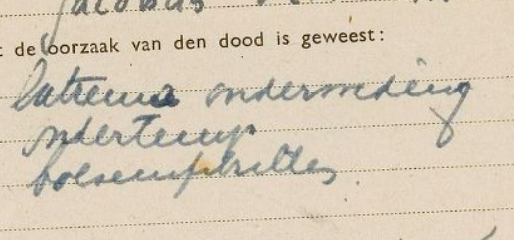 Jacobus
t de oorzaak van den dood is geweest:
Extreme ondervoeding
ondertemp